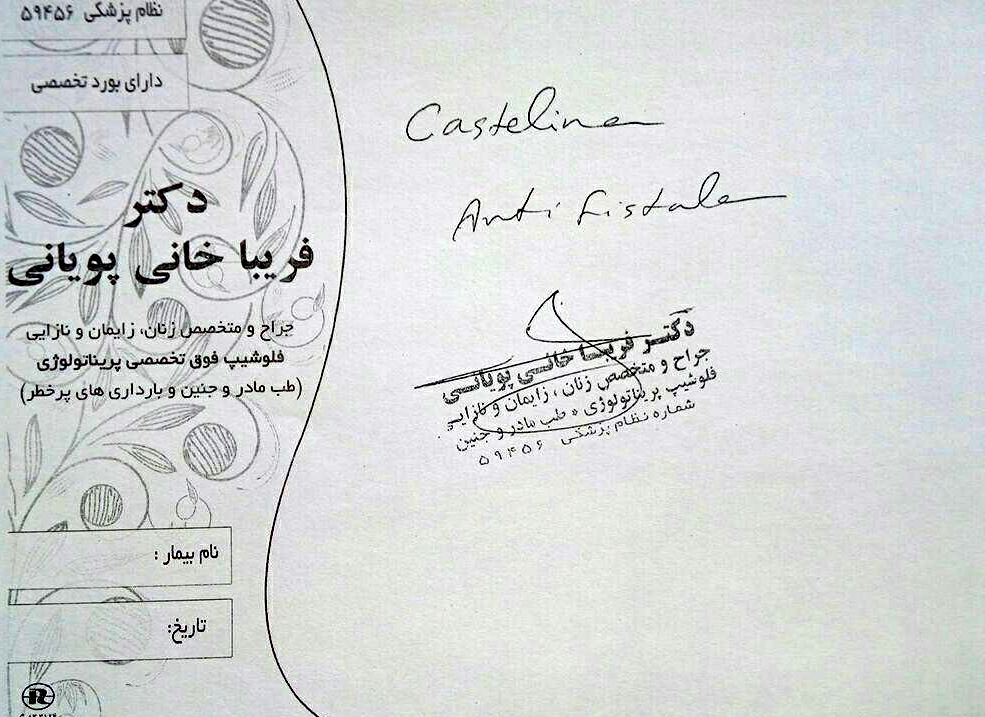 نظام پزشکی ۵۹۴۵۶
دارای بورد تخصصی
دکتر
فریبا خانی پویانی
جراح و متخصص زنان، زایمان و نازایی
فلوشیپ فوق تخصصی پریناتولوژی
(طب مادر و جنین و بارداری های پرخطر)
نام بیمار :
تاریخ:
R
Casteline
Anti fistale
دکتر فریبا خانی پویانی
جراح و متخصص زنان ، زایمان و نازایی
فلوشیپ پریناتولوژی • طب مادر و جنین
شماره نظام پزشکی ۵۹۴۵۶